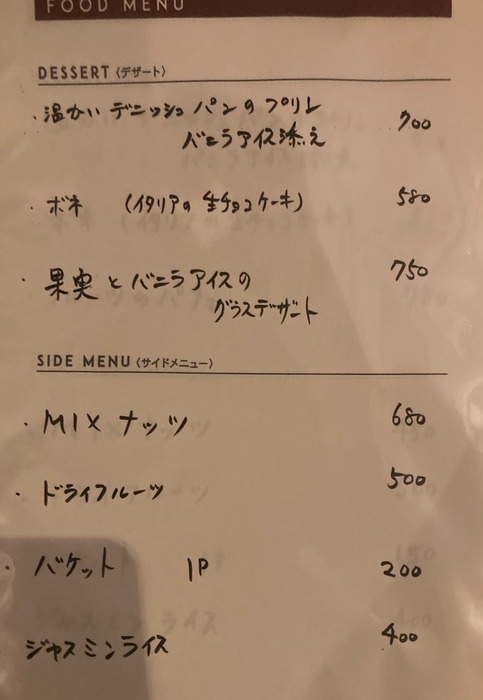 FOOD MENU
DESSERT〈デザート〉
・温かい デニッシュ パンの プリン 700
バニラアイス添え
・ボネ (イタリアの 生チョコケーキ) 580
・果実とバニラアイスの 750
グラスデザート
SIDE MENU〈サイドメニュー〉
・MIX ナッツ 680
・ドライフルーツ 500
・バケット 1P 200
ジャスミンライス 400